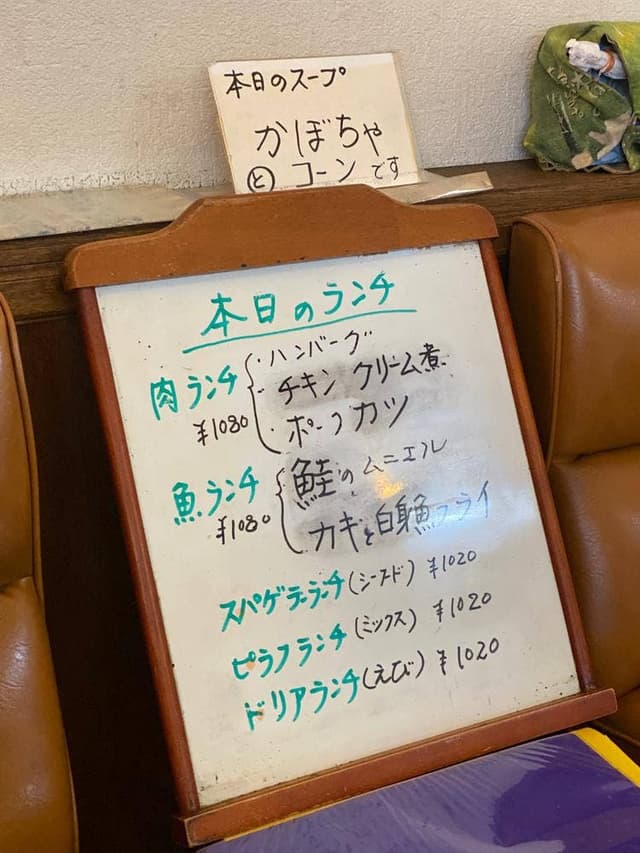 本日のスープ
かぼちゃ
と コーン です
本日のランチ
肉ランチ
¥1080
・ハンバーグ
・チキン クリーム煮
・ポークカツ
魚ランチ
¥1080
鮭のムニエル
カキと白身魚フライ
スパゲティランチ(シーフード) ¥1020
ピラフランチ(ミックス) ¥1020
ドリアランチ(えび) ¥1020